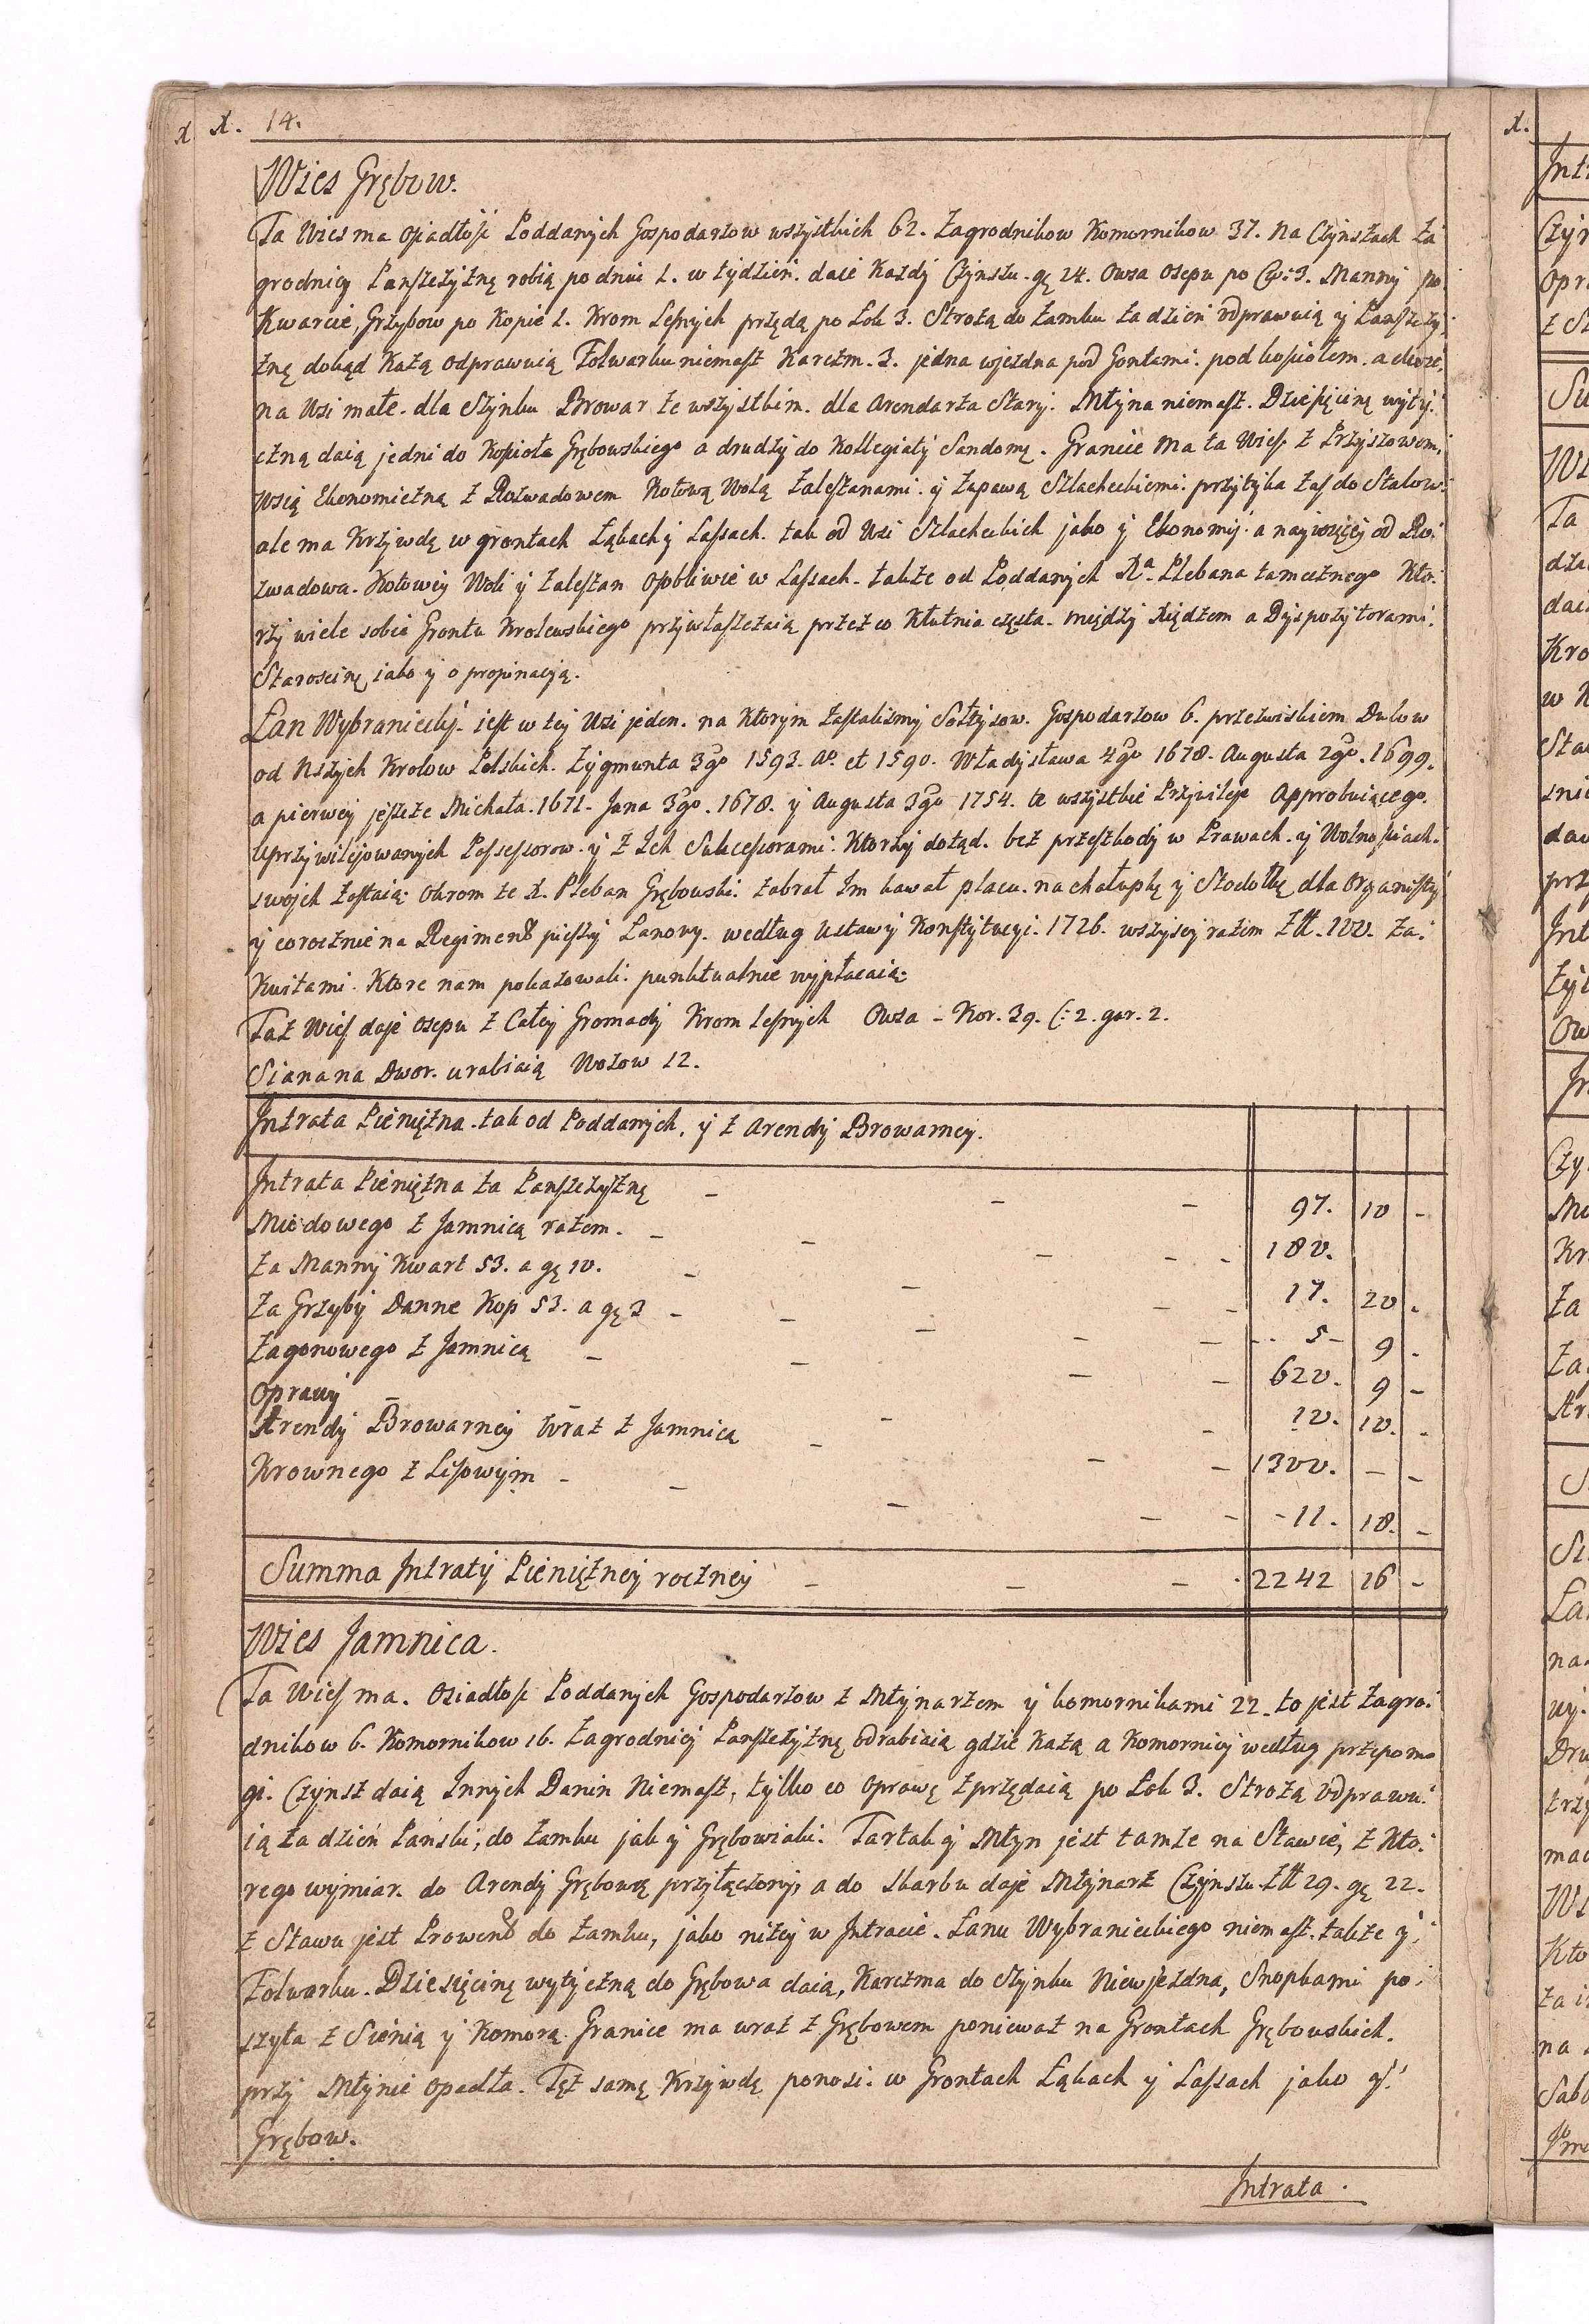 X. 14.
Wies Grębow.
Ta Wies ma osiadłość Poddanych Gospodarzow wszystkich 62. Zagrodnikow Komornikow 37. na Czynszach Za
grodnicy Panszczyznę robią po dniu 1. w tydzień. daie Kazdy Czynszu. gę 24. Owsa osepu po Cw: 3. Manny po
Kwarcie, Grzybow po Kopie 1. Krom Lesnych przędą po Łok 3. Strożą do Zamku za dzien odprawuią y Panszczy.
znę dokąd Każą odprawuią Folwarku niemasz Karczm. 3. jedna wjezdna pod Gontami. pod kosciołem. a dwie.
na Wsi małe. dla Szynku Browar ze wszystkim. dla Arendarza Stary. Młyna niemasz. Dziesięcinę wyty.
czną daią jedni do Kosioła Grębowskiego a drudzy do Kollegiaty Sandomę. Granice ma ta Wies z Przyszowem,
Wsią Ekonomiczną z Rozwadowem Kotową Wolą Zaleszanami. y Zapawą Szlacheckiemi. przytyka zas do Stalow.
ale ma Krzywdę w grontach Łąkach y Lassach. tak od Wsi Szlacheckich jako y Ekonomij. a naywięcey od Ro.
zwadowa. Kotowey Woli y Zaleszan osobliwie w Lassach. także od Poddanych Xa. Plebana tamecznego Kto.
rzy wiele sobie Grontu Krolewskiego przywłaszczaią przez co Kłutnia częsta. między Xiędzem a Dysponytorami.
Starosciny iako y o propinacyą.
Łan Wybraniecky. iest w tey Wsi jeden. na Ktorym Zastalismy Sołtysow. Gospodarzow 6. przezwiskiem Dulow
od Nszych Krolow Polskich. Zygmunta 3go 1593. Ao. et 1590. Władysława 4go 1678. Augusta 2go. 1699.
a pierwey jeszcze Michała. 1671. Jana 3go. 1678. y Augusta 3go 1754. te wszystkie Przywileje Approbuiącego.
uprzywilejowanych Possessorow. y z Ich Sukcessorami. Ktorzy dotąd. bez przeszkody w Prawach. y Wolnosciach.
swoich zostaią. Okrom ze X. Pleban Grębowski. zabrał Im kawał placu. na chałupkę y Stodołkę dla Organisty
y corocznie na Regiment pieszy Lanowy. według Ustawy Konstytucyi. 1726. wszyscy razem Złł. 100. za.
Kwitami. Ktore nam pokazowali. punktualnie wypłacaią.
Taż Wies daje osepu z Całey Gromady Krom Lesnych Owsa - Kor. 39. C: 2. gar. 2.
Siana na Dwor. urabiaią Wozow 12.
Intrata Pieniężna. tak od Poddanych, y z Arendy Browarney.
Intrata Pieniężna za Panszczyznę - - - 97. 10 -
Miodowego z Jamnicą razem. - - - - - 180.
Za Manny Kwart 53. a gę 10. - - - - 17. 20 -
Za Grzyby Danne Kop 53. a gę 3 - - - - - 5 - 9 -
Zagonowego z Jamnicą - - - - 620. 9 -
Oprawy - - - - 10. 10. -
Arendy Browarney Wraz z Jamnicą - - - 1300. - -
Krownego z Lisowym - - - - - 11. 18. -
Summa Intraty Pieniężney roczney - - - 2242 16 -
Wies Jamnica.
Ta Wies ma. Osiadłość Poddanych Gospodarzow z Młynarzem y komornikami 22. to jest Zagro.
dnikow 6. Komornikow 16. Zagrodnicy Panszczyznę Odrabiaią gdzie Każą a Komornicy według przepomo
gi. Czynsz daią Innych Danin Niemasz, tylko co Oprawę zprzędaią po Łok 3. Strożą Odprawu.
ią za dzień Panski, do Zamku jak y Grębowiaki. Tartak y Młyn jest tamże na Stawie, z Kto.
rego wymiar. do Arendy Grębową przyłączony, a do Skarbu daje Młynarz Czynszu. Złł 29. gę 22.
z Stawu jest Prowent do Zamku, jako niżey w Intracie. Łanu Wybranieckiego niemasz. także y.
Folwarku. Dziesięcinę wytyczną do Grębowa daią, Karczma do Szynku Niewjezdna, Snopkami po.
szyta z Sienią y Komorą. Granice ma wraz z Grębowem ponieważ na Grontach Grębowskich.
przy Młynie Opadła. Też samę Krzywdę ponosi. w Grontach Łąkach y Lassach jako y.
Grębow.
Intrata.